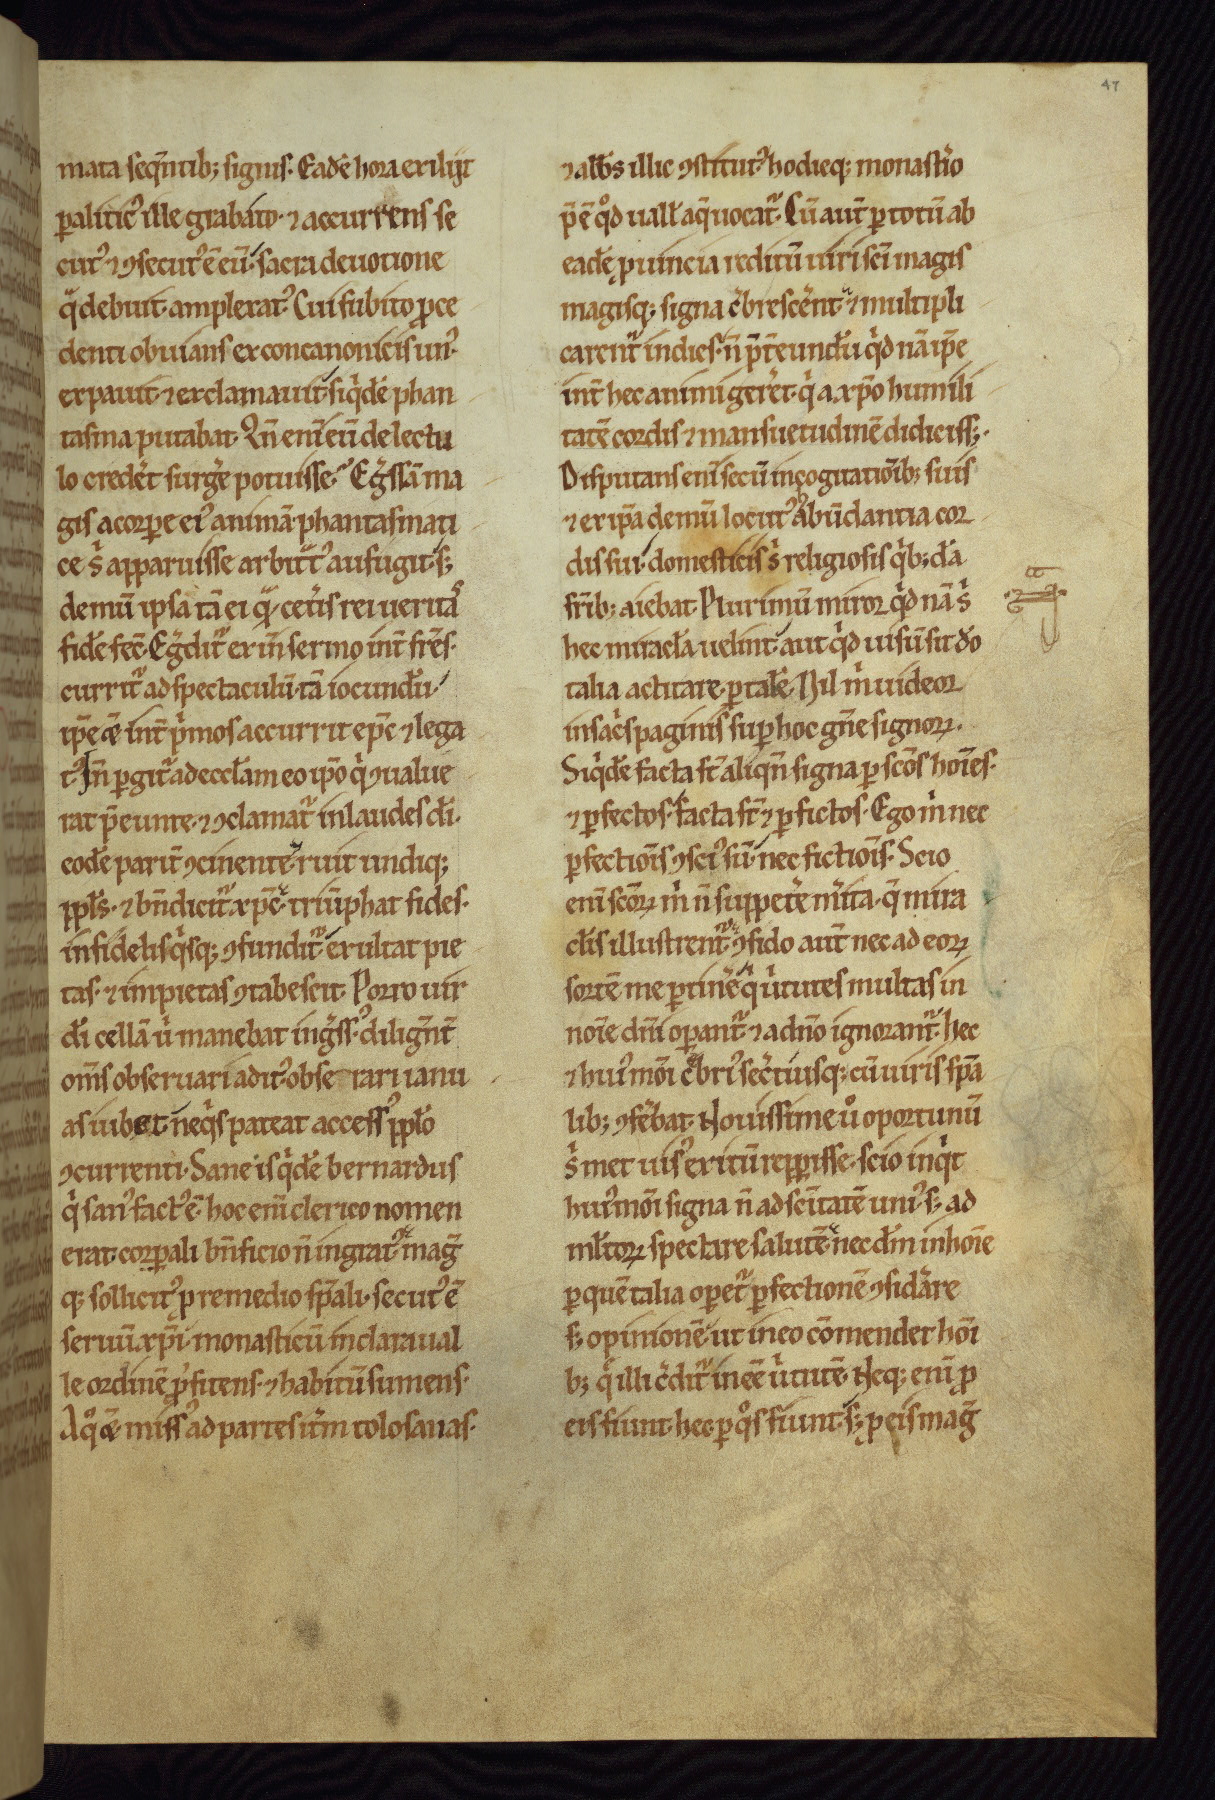 47
mata seq̄ntib; signis. Eadē hora exiliit
ꝑalitic᷒ ille grabato. ⁊ accurrens se
cut᷒ ⁊ ꝯsecut᷒ ē eū. sacra deuotione
q̄ debuit amplexat᷒. Cui subito ꝓce
denti obuians ex concanonicis un᷒.
expauit. ⁊ exclamauit. siq̇dē phan
tasma putabat. Nn̄ enī eū de lectu
lo credēt surgē potuisse. Eg̃ssā ma
gis a corꝑe ei᷒ animā phantasmati
ce ṡ apparuisse arbit̃t᷒ aufugit. s;
demū ipsa tā ei q̄ cet̃is rei uerita᷒
fidē fec̄. Eg̃dit᷒ exin̄ sermo int̄ fr̄es.
currit᷒ ad spectaculū tā iocundū.
ip̄e & int̄ pͥmos accurrit ep̄c ⁊ lega
t᷒. In̄ ꝑgit᷒ ad eccl̄am eo ip̄o qͥ ꝯualue
rat p̄eunte. ⁊ ꝯclamat᷒ in laudes dī.
eodē parit̄ ꝯcinente. ruit undiq;
ppl̄s. ⁊ bn̄dicit᷒ xp̄c. triūphat fides.
infidelisqͥsq; ꝯfundit᷒. exultat pie
tas. ⁊ impietas ꝯtabescit. Porro uir
dī cellā uͥ manebat ing̃ss᷒. dilign̄t
om̄s obseruari adit᷒ obse rari ianu
as iubet. neqͥs pateat access᷒ ppl̄o
ꝯcurrenti. Sane isqͥdē bernardus
qͥ san᷒ fact᷒ ē. hoc enī clerico nomen
erat. corꝑali bn̄ficio n̄ ingrat᷒. mag̃
q; sollicit᷒ ꝓ remedio sp̄ali. secut᷒ ē
seruū xp̄i. monasticū in claraual
le ordinē ꝓfitens. ⁊ habitū sumens.
A qͦ & miss᷒ ad partes it̄m tolosanas.
⁊ abb̄s illic ꝯstitut᷒. hodieq; monast̃io
p̄ē qͦd uall̄ aq̄ uocat᷒. Cū aut̄ ꝑ totū ab
eadē ꝓuincia reditū uiri sc̄i magis
magisq; signa c̃brescēnt ⁊ multipli
carent᷒ indies. n̄ p̄t̄eundū qͥd nā ip̄e
int̄ hec animi geret. qͥ a xp̄o humili
tatē cordis ⁊ mansuetudinē didiciss;.
Disputans enī secū in cogitatiōib; suis
⁊ ex ip̄a demū locut᷒ abūdantia cor
dis sui. domesticis ṡ religiosis qͥb;dā
fr̄ib; aiebat. Plurimū miror qͥd nā ṡ
hec miracl̄a uelint. aut qͥd uisū sit dō
talia actitare. ꝑ tale. Nil m̄ uideor
in sac̄s paginis suꝑ hoc gn̄e signoꝝ.
Siqͥdē facta st̄ aliqn̄ signa ꝑ scōs hōies.
⁊ ꝑfectos. facta st̄ ⁊ ꝑ fictos. Ego m̄ nec
ꝑfectiōis ꝯsci᷒ sū. nec fictiōis. Scio
enī scōꝝ m̄ n̄ suppetē m̄ita. q̄ mira
cl̄is illustrent᷒. ꝯfido aut̄ nec ad eoꝝ
sortē me ꝑtinē qͥ uͥtutes multas in
nōie dn̄i oꝑant᷒. ⁊ a dn̄o ignorant᷒. Hec
⁊ hui᷒mōi c̃bri᷒ sec̃tiusq; cū uiris sp̄a
lib; ꝯfēbat. Nouissime uͦ oportunū
ṡ met uis᷒ exitū repꝑisse. scio inqͥt
hui᷒mōi signa n̄ ad sc̄itatē uni᷒. s; ad
ml̄toꝝ spectare salutē. nec dm̄ in hōie
ꝑ quē talia oꝑet᷒ ꝑfectionē ꝯsidāre
s; opinionē. ut in eo cōmendet hōi
b; q̄ illi c̃dit᷒ inēē uͥtutē. Neq; enī ꝓ
eis fiunt hec. ꝑ qͦs fiunt. s; ꝓ eis mag̃